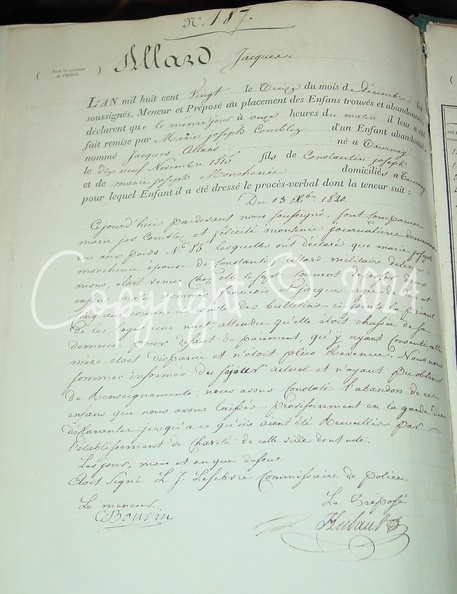 N.° 187.
Nom et prénoms de l'Enfant.
Allard Jacques
L'AN mil huit cent Vingt le Treize du mois d Décembre
soussignés, Meneur et Préposé au placement des Enfans trouvés et abandonnés,
déclarent que le même jour à onze heures du matin il leur a été
fait remise par Marie Joseph Comblez d'un Enfant abandonné,
nommé Jacques Allard né a Tournay
le dix neuf Novembre 1815 fils de Constantin Joseph
et de marie joseph Monchenie domiciliés a Tournay
pour lequel Enfant il a été dressé le procès-verbal dont la teneur suit :
Du 13 Xbre 1820.
Cejourd'huis pardevant nous soussigné, sont comparues
marie jos Comblez et félicité
aux poids N° 15, lesquelles ont déclaré que marie joseph
monchenie épouse de Constantin allard militaire
mons, étoit venue chez elle le sept courant
enfant Jacques
cinq ans
de les loger une nuit attendu qu'elle étoit chassée de sa
demeure pour défaut de paiement, qu'y ayant consenti
mère étoit disparue et n'étoit plus revenue. Nous nous
sommes informés du fait actuel et n'ayant pu obtenir
de Renseignements, nous avons Constaté l'abandon de cet
enfant que nous avons laissé provisoirement en la garde des
déclarantes jusqu'à ce qu'il ait été Recueilli par
l'établissement de Charité de cette ville dont note.
Les jour, mois et an que dessus
étoit signé L. J. Lefebvre Commissaire de police.
Le meneur Le Préposé
CBouvin Hubault
Copyright © 2024